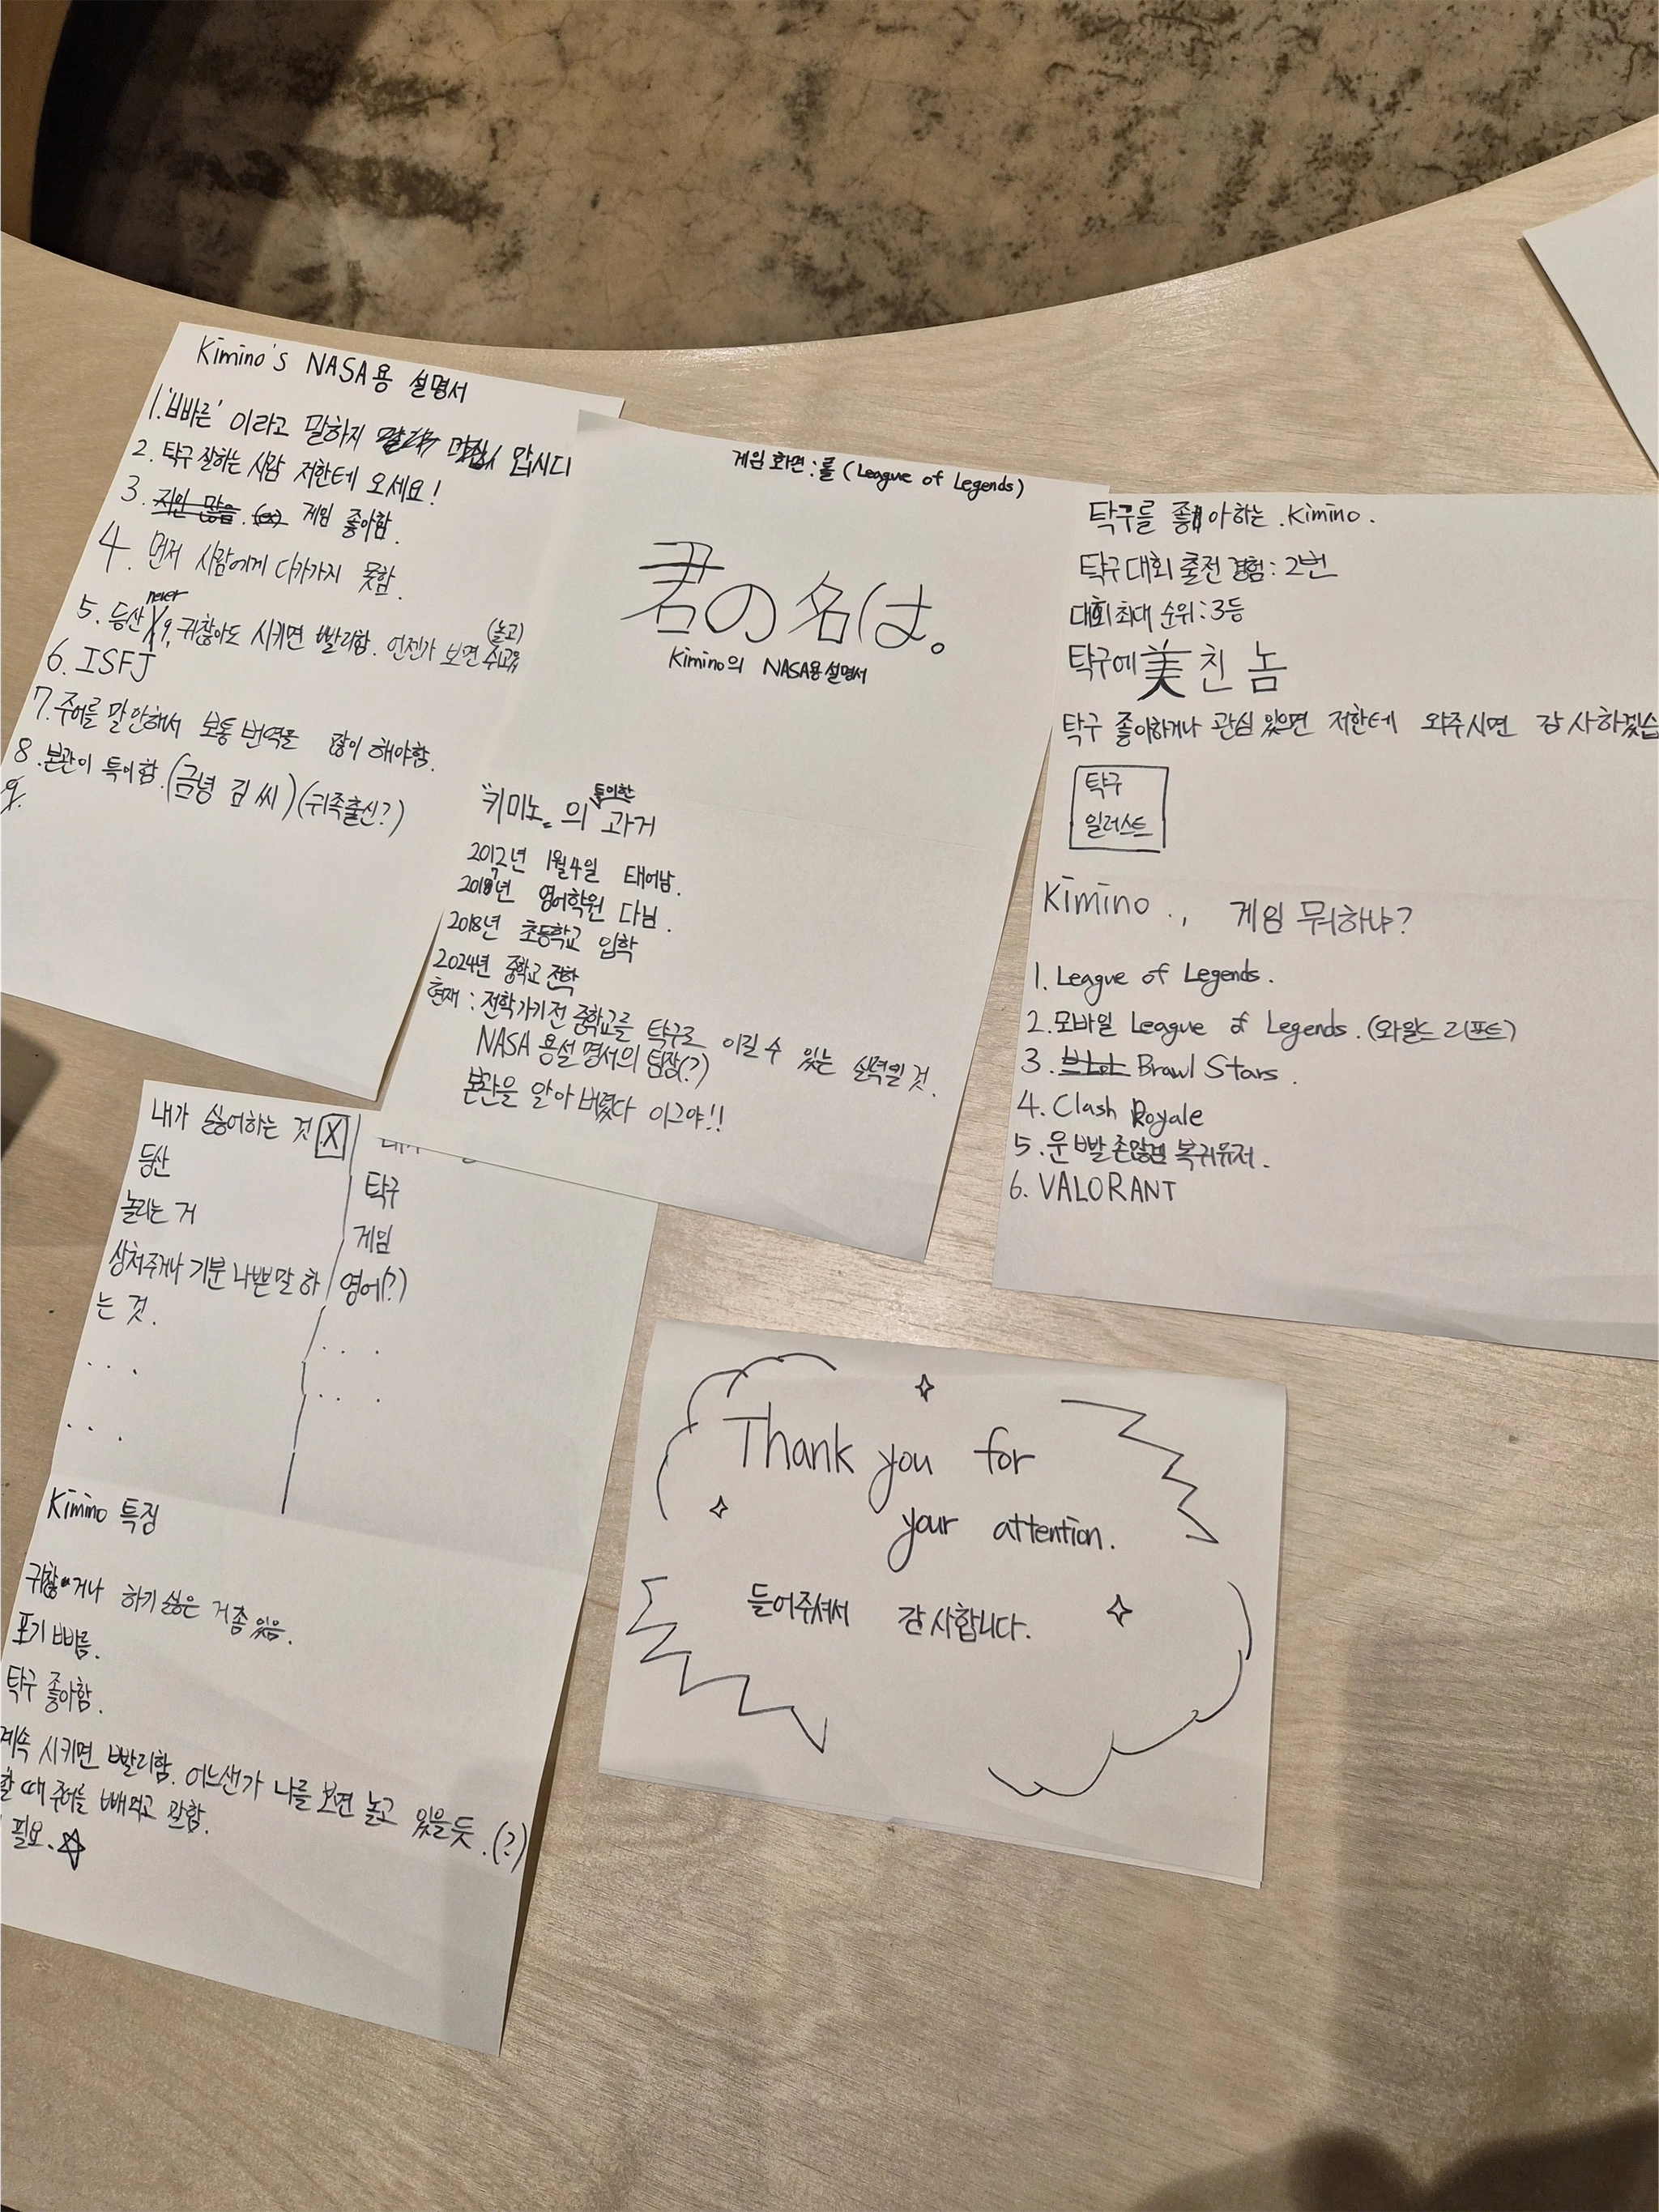 Kimino's NASA용 설명서
1. '빠른' 이라고 말하지 맙시다
2. 탁구 잘하는 사람 저한테 오세요!
3. 게임 좋아함.
4. 먼저 사람에게 다가가지 못함.
5. 등산 X never 9. 귀찮아도 시키면 빨리함. 언젠가 보면 (놀고)
6. ISFJ
7. 주어를 말 안해서 보통 번역을 많이 해야함.
8. 본관이 특이함. (금녕 김씨) (귀족출신?)
게임 화면 : 롤 (League of Legends)
君の名は。
Kimino의 NASA용 설명서
"키미노" 의 특이한 과거
2012년 1월 4일 태어남.
2018년 영어학원 다님.
2018년 초등학교 입학
2024년 중학교 전학
현재 : 전학가기전 중학교를 탁구로 이길 수 있는 실력일 것.
NASA 용설명서의 팀장(?)
본관을 알아버렸다 이그야!!
탁구를 좋아하는 . Kimino .
탁구 대회 출전 경험 : 2번
대회 최대 순위 : 3등
탁구에 美친 놈
탁구 좋아하거나 관심 있으면 저한테 와주시면 감사하겠습
탁구
일러스트
Kimino . , 게임 뭐하냐?
1. League of Legends .
2. 모바일 League of Legends . (와일드 리프트)
3. Brawl Stars .
4. Clash Royale
5. 운빨존많겜 복귀유저 .
6. VALORANT
내가 싫어하는 것 X
등산
놀리는 거
상처주거나 기분 나쁜말 하
는 것.
. . .
. . .
탁구
게임
영어(?)
. . .
. . .
Kimino 특징
귀찮거나 하기 싫은 거 좀 있음.
포기 빠름.
탁구 좋아함.
계속 시키면 빨리함. 어느샌가 나를 보면 놀고 있을 듯.(?)
할 때 주어를 빼먹고 말함.
필요.
Thank you for
your attention.
들어주셔서 감사합니다.